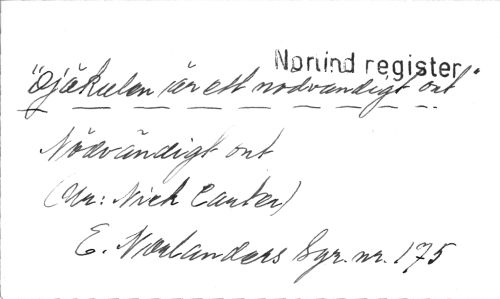 Norlind register
"Djäkulen är ett nödvändigt ont"
Nödvändigt ont
(Ur: Nick Carter)
E. Norlanders Syr. nr. 175